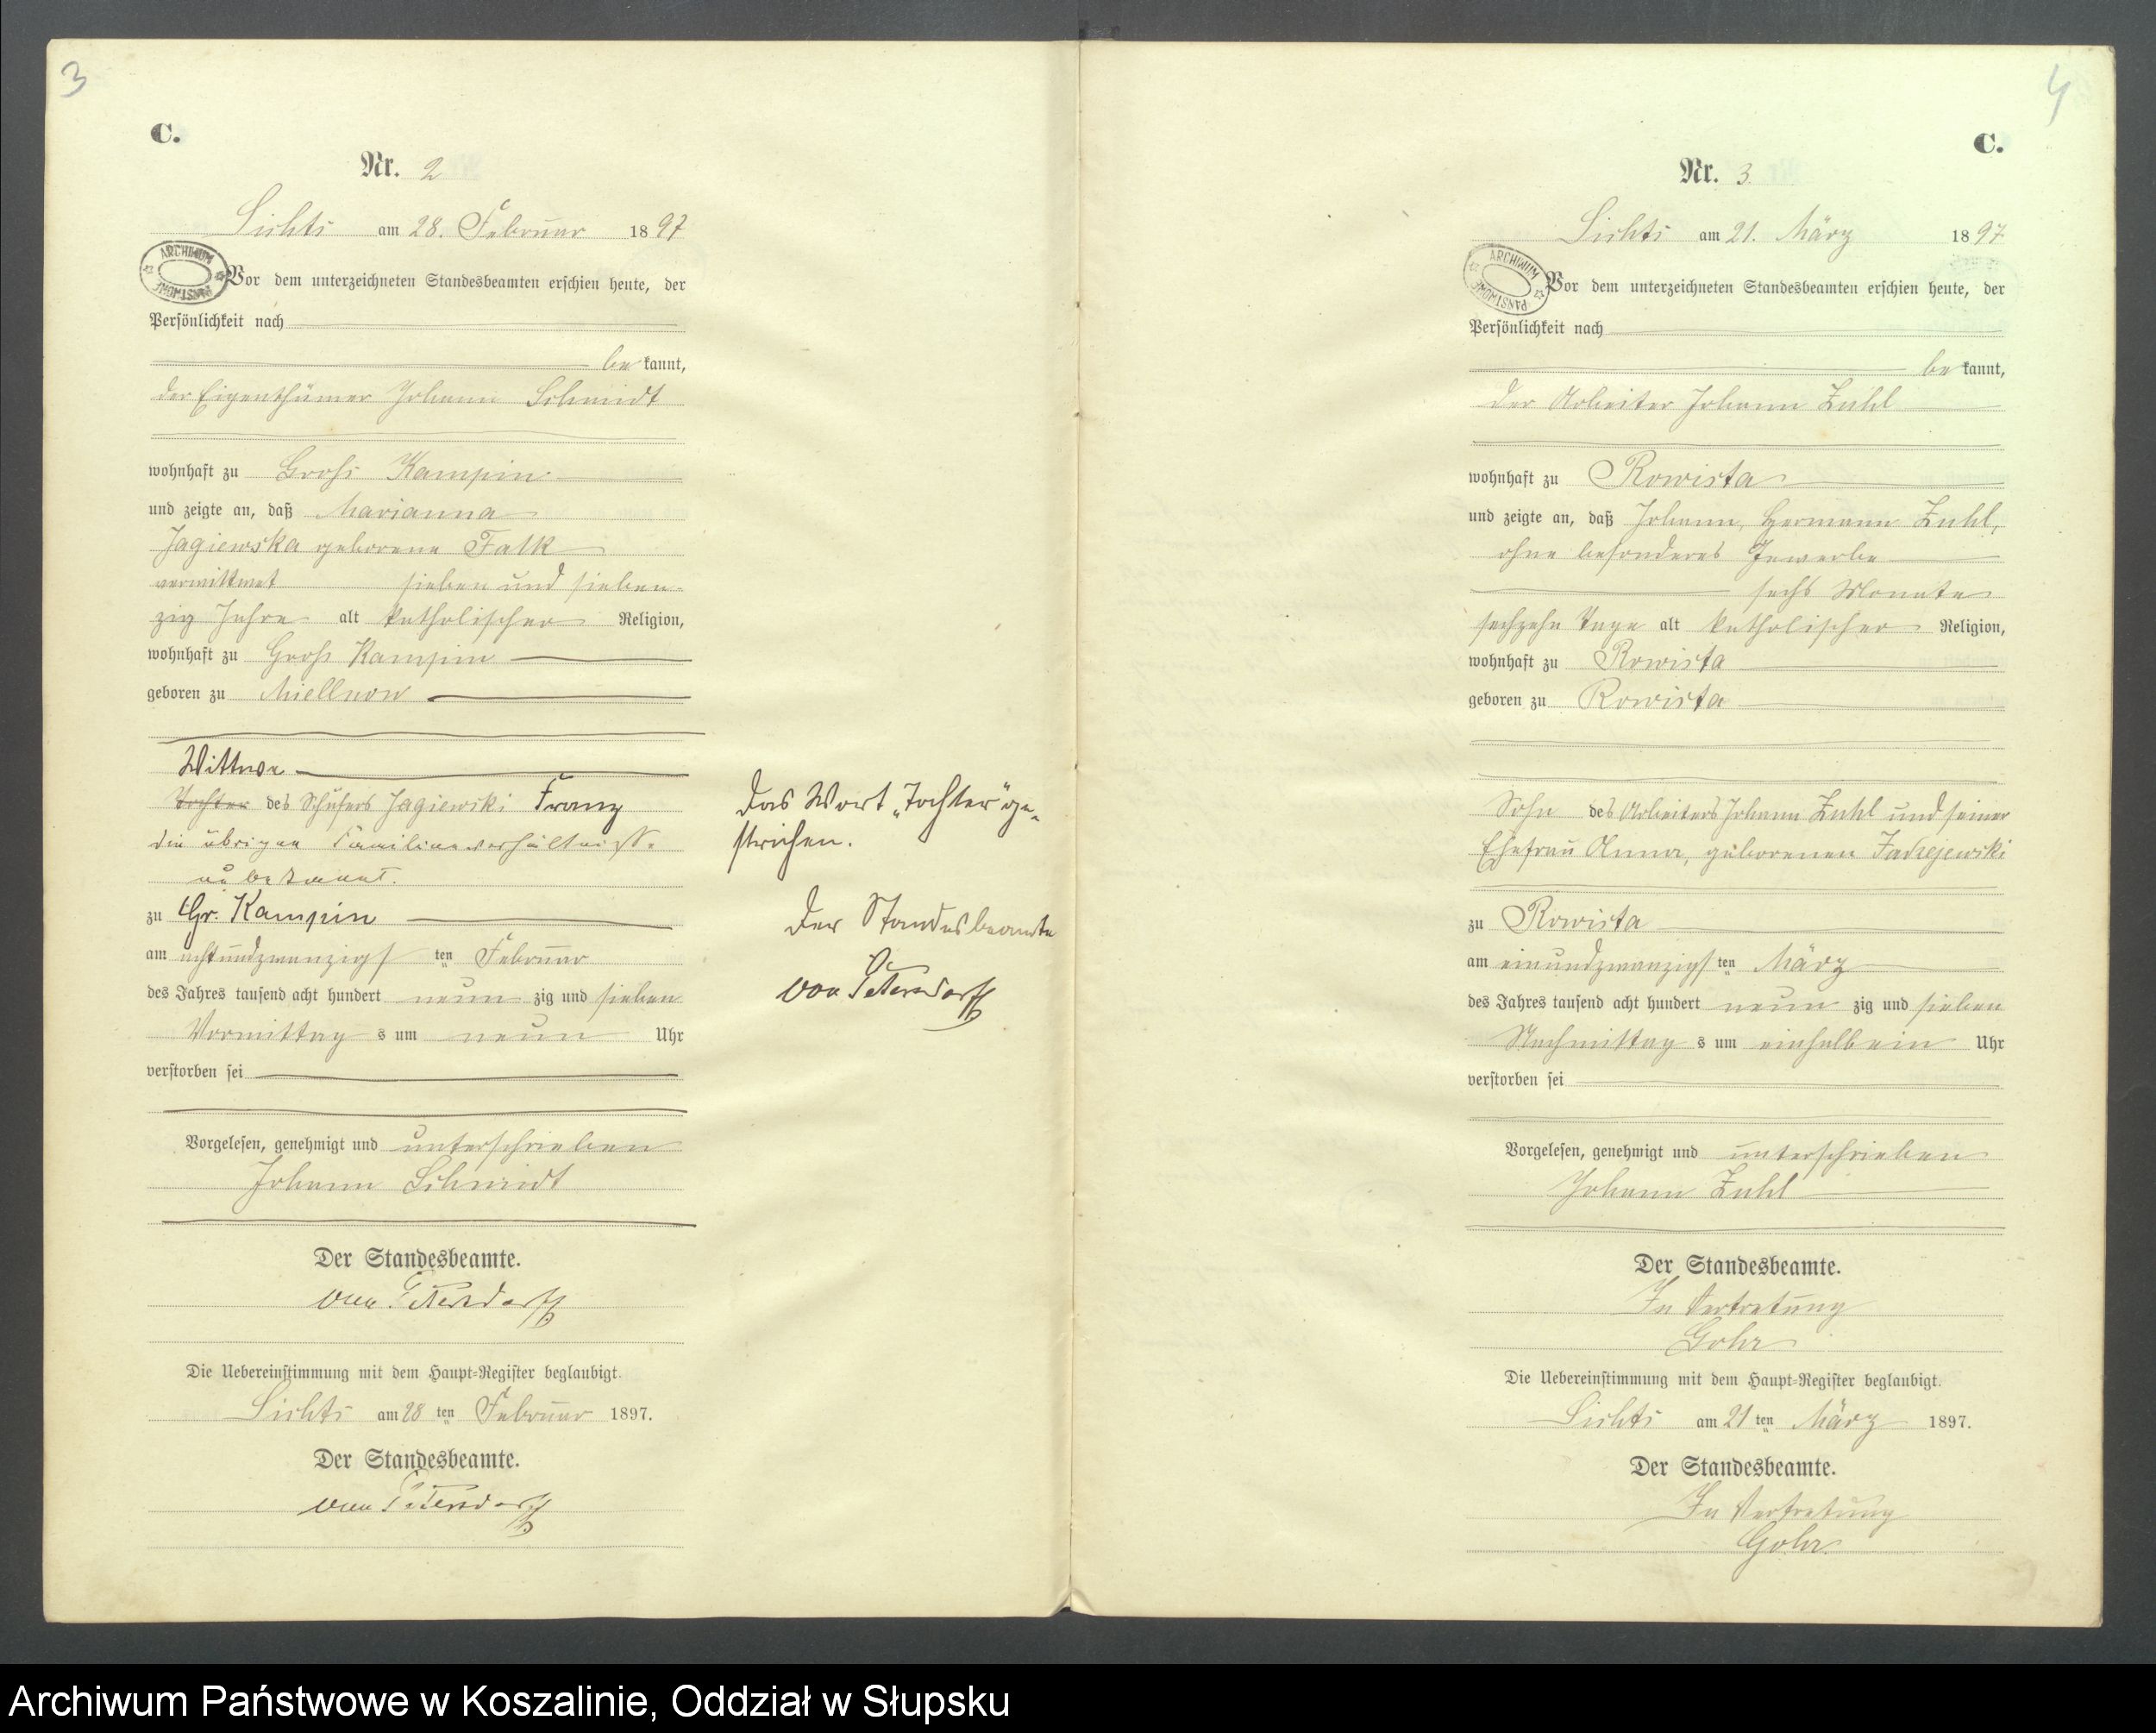 3
C.
Nr. 2
Lichts am 28. Februar 1897
ARCHIWUM PAŃSTWOWE
Vor dem unterzeichneten Standesbeamten erschien heute, der
Persönlichkeit nach
be kannt,
der Eigenthümer Johann Schmidt
wohnhaft zu Groß Kampin
und zeigte an, daß Marianna
Jagiewska geborene Falk
verwittwet sieben und sieben-
zig Jahre alt katholischer Religion,
wohnhaft zu Groß Kampin
geboren zu Miellnow
Wittwe
Tochter des Schäfers Jagiewski Franz
die übrigen Familienverhältnisse
unbekannt.
zu Gr. Kampin
am achtundzwanzigsten Februar
des Jahres tausend acht hundert neunzig und sieben
Vormittags um neun Uhr
verstorben sei
Vorgelesen, genehmigt und unterschrieben
Johann Schmidt
Der Standesbeamte.
von Petersdorff
Die Uebereinstimmung mit dem Haupt-Register beglaubigt.
Lichts am 28ten Februar 1897.
Der Standesbeamte.
von Petersdorff
Das Wort „Tochter“ ge-
strichen.
Der Standesbeamte
von Petersdorff
4
C.
Nr. 3
Lichts am 21. März 1897
ARCHIWUM PAŃSTWOWE
Vor dem unterzeichneten Standesbeamten erschien heute, der
Persönlichkeit nach
be kannt,
der Arbeiter Johann Zuhl
wohnhaft zu Rowista
und zeigte an, daß Johann, Hermann Zuhl,
ohne besonderes Gewerbe
sechs Monate
sechzehn Tage alt katholischer Religion,
wohnhaft zu Rowista
geboren zu Rowista
Sohn des Arbeiters Johann Zuhl und seiner
Ehefrau Anna, geborenen
zu Rowista
am einundzwanzigsten März
des Jahres tausend acht hundert neunzig und sieben
Nachmittags um einhalb ein Uhr
verstorben sei
Vorgelesen, genehmigt und unterschrieben
Johann Zuhl
Der Standesbeamte.
In Vertretung
Gohr
Die Uebereinstimmung mit dem Haupt-Register beglaubigt.
Lichts am 21ten März 1897.
Der Standesbeamte.
In Vertretung
Gohr
Archiwum Państwowe w Koszalinie, Oddział w Słupsku